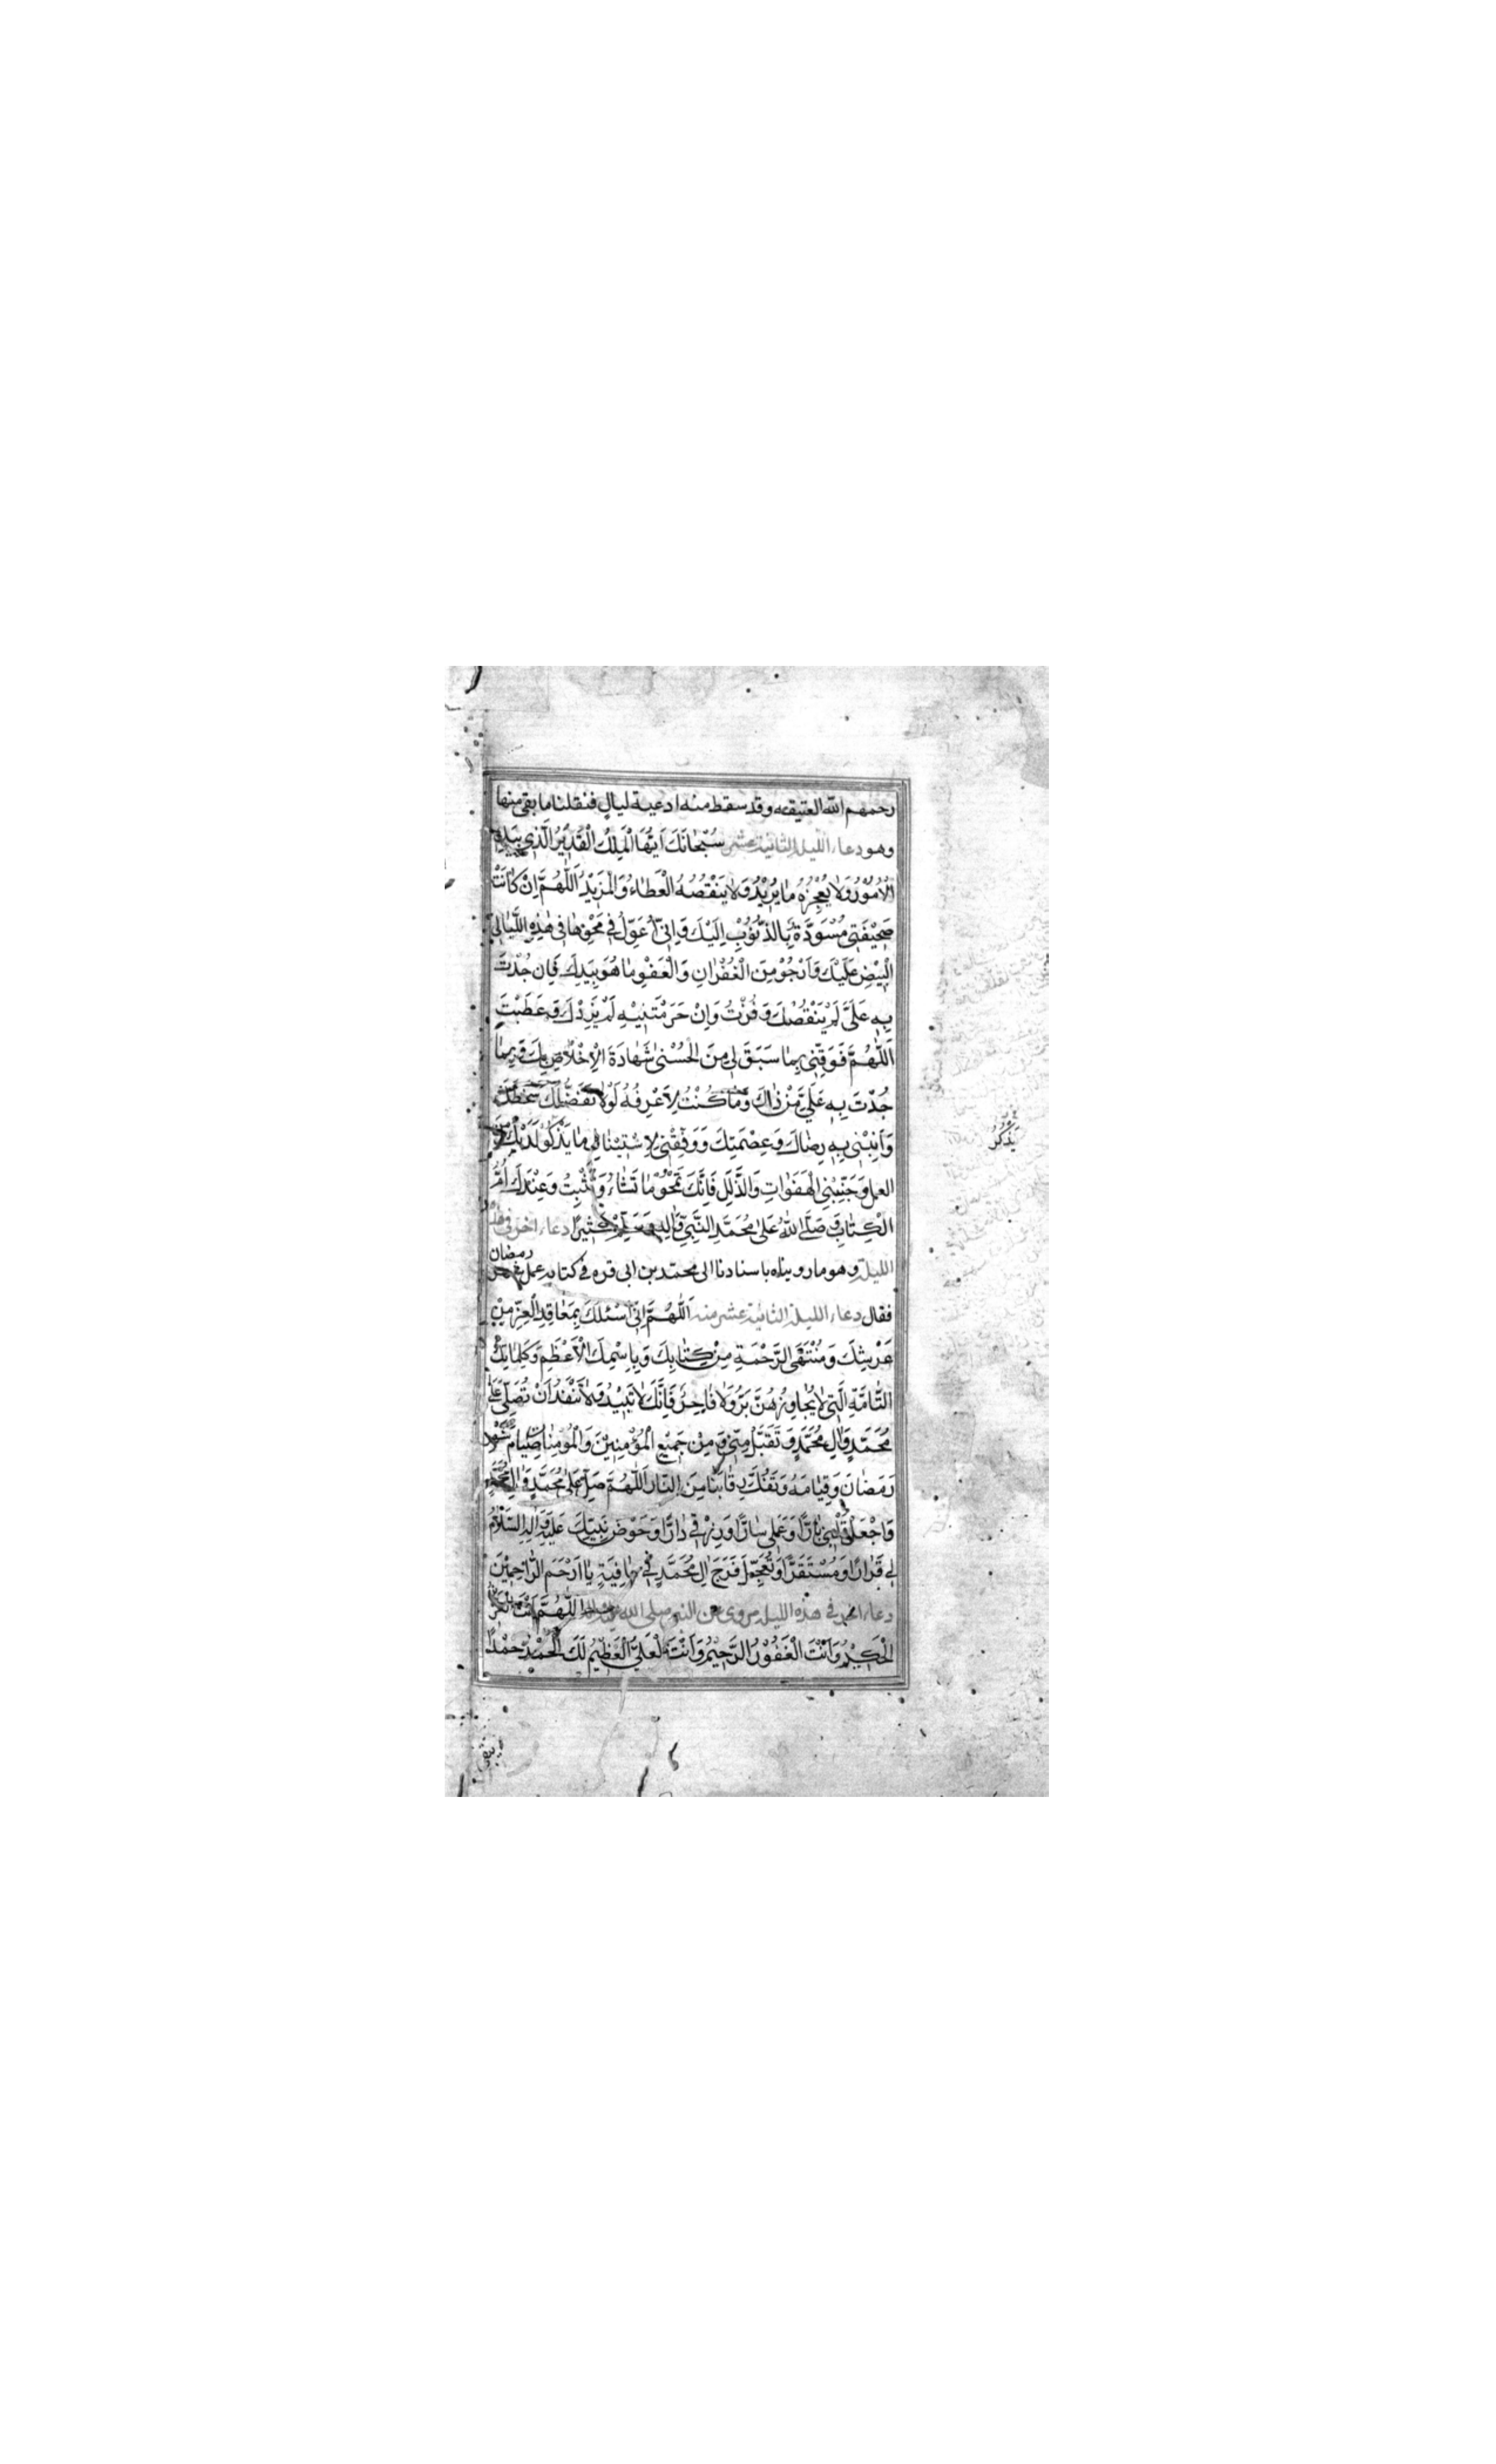 رحمهم الله العتيقه وقد سقط منه ادعية ليالٍ فنقلنا ما بقى منها
وهو دعاء الليلة الثانية عشر سُبْحانَكَ اَيُّهَا الْمَلِكُ الْقَدِيْرُ الَّذِي بِيَدِهِ
الْاُمُوْرُ وَلا يُعْجِزُهُ ما يُرِيْدُ وَلا يَنْقُصُهُ الْعَطاءُ وَالْمَزِيْدُ اَللّٰهُمَّ اِنْ كانَتْ
صَحِيْفَتِي مُسْوَدَّةً بِالذُّنُوْبِ اِلَيْكَ فَاِنِّي اُعَوِّلُ فِي مَحْوِها فِي هٰذِهِ اللَّيالِي
الْبِيْضِ عَلَيْكَ وَاَرْجُوْ مِنَ الْغُفْرانِ وَالْعَفْوِ ما هُوَ بِيَدِكَ فَاِن جُدْتَ
بِهِ عَلَيَّ لَمْ يَنْقُصْكَ وَفُزْتُ وَاِنْ حَرَمْتَنِيْهِ لَمْ يَزِدْكَ وَعَطَبْتَ
اَللّٰهُمَّ فَوَفِّنِي بِما سَبَقَ لِي مِنَ الْحُسْنىٰ شَهادَةَ الْاِخْلاصِ بِكَ وَبِما
جُدْتَ بِهِ عَلَيَّ مِنْ ذاكَ وَما كُنْتُ لِاَعْرِفُهُ لَوْلا تَفَضُّلُكَ سَخَطَكَ
وَاَنِبْنِي بِهِ رِضاكَ وَعِصْمَتِكَ وَوَفِّقْنِي لِاسْتِيْنافِ ما يَذْكُو لَدَيْكَ مِنَ
العمل وَجَنِّبْنِي الْهَفَواتِ وَالذَّلَلِ فَاِنَّكَ تَمْحُوْ ما تَشاءُ وَتُثْبِتُ وَعِنْدَكَ اُمُّ
الْكِتابِ وَصَلَّى اللهُ عَلىٰ مُحَمَّدٍ النَّبِيِّ وَآلِهِ وَسَلِّمْ كَثِيْرًا دعاء اخر فى هذه
الليلة وهو ما رويناه باسنادنا الى محمد بن ابى قره فى كتابه عمل شهر رمضان
فقال دعاء الليلة الثانية عشر منه اَللّٰهُمَّ اِنِّي اَسْئَلُكَ بِمَعاقِدِ الْعِزِّ مِنْ
عَرْشِكَ وَمُنْتَهَى الرَّحْمَةِ مِنْ كِتابِكَ وَبِاسْمِكَ الْاَعْظَمِ وَكَلِماتِكَ
التَّامَّةِ الَّتِي لا يُجاوِزُهُنَّ بَرٌّ وَلا فاجِرٌ فَاِنَّكَ لا تَبِيْدُ وَلا تَنْفَدُ اَنْ تُصَلِّيَ عَلىٰ
مُحَمَّدٍ وَآلِ مُحَمَّدٍ وَتَقَبَّلْ مِنِّي وَمِنْ جَمِيْعِ الْمُؤْمِنِيْنَ وَالْمُؤْمِناتِ صِيامَ شَهْرِ
رَمَضانَ وَقِيامَهُ وَتَفُكَّ رِقابَنا مِنَ النّارِ اَللّٰهُمَّ صَلِّ عَلىٰ مُحَمَّدٍ وَآلِ مُحَمَّدٍ
وَاجْعَلْ قَلْبِي بارًّا وَعَمَلِي سارًّا وَرِزْقِي دارًّا وَحَوْضَ نَبِيِّكَ عَلَيْهِ وَآلِهِ السَّلامُ
لِي قَرارًا وَمُسْتَقَرًّا وَتُعَجِّلَ فَرَجَ آلِ مُحَمَّدٍ فِي عافِيَةٍ يا اَرْحَمَ الرّاحِمِيْنَ
دعاء اخر فى هذه الليلة مروى عن النبى صلى الله عليه واله اَللّٰهُمَّ اَنْتَ الْعَزِيْزُ
الْحَكِيْمُ وَاَنْتَ الْغَفُوْرُ الرَّحِيْمُ وَاَنْتَ الْعَلِيُّ الْعَظِيْمُ لَكَ الْحَمْدُ حَمْدًا
يَذْكُرُ
يبقى